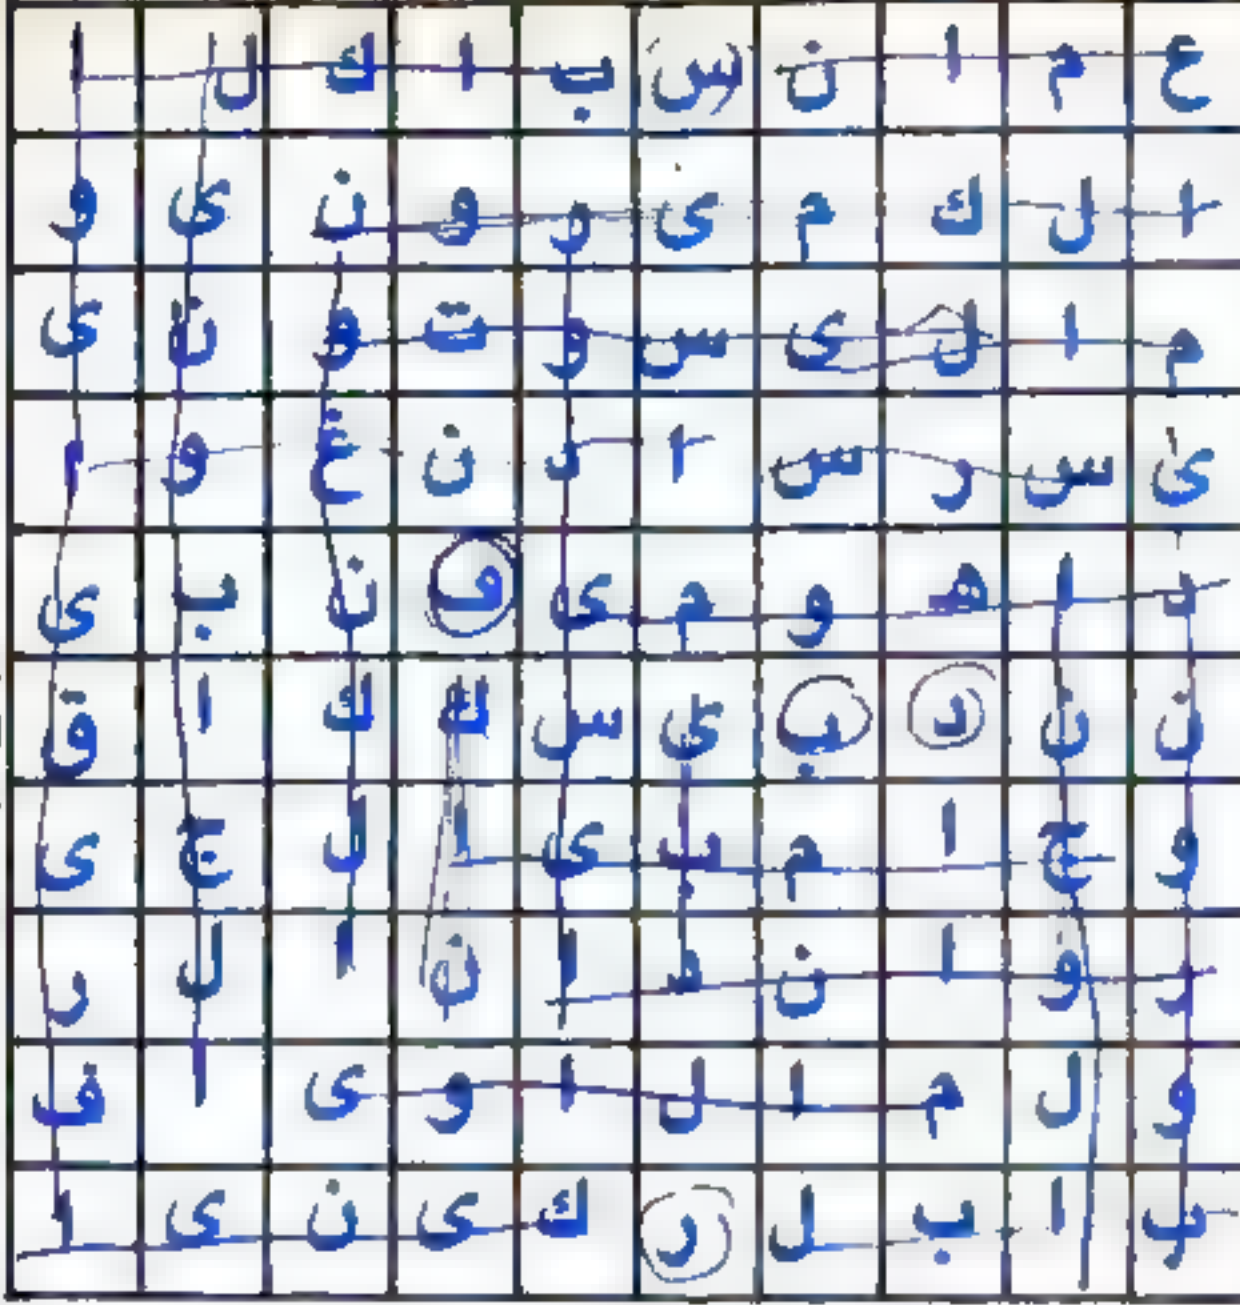 ع م ا ن س ب ا ك ل ا
ا ل ك م ى ر و ن ى و
م ا ل ى س و ت و ن ى
ى س ر س ا ر ن غ و ا
د ا ه و م ى ف ن ب ى
ن ن د ب ى س ك ك ا ق
و ج ا م ب ى ا ل ج ى
ر و ا ن ط ا ن ا ل ر
و ل م ا ل ا و ى ا ف
ب ا ب ل ر ك ى ن ى ا